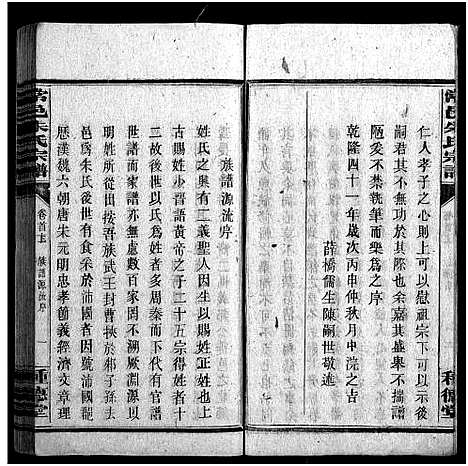 常邑朱氏宗譜
仁人孝子之心則上可以慰祖宗下可以示後
嗣君其不無功於其際也余嘉其盛舉不揣譾
陋爰不禁執筆而樂為之序
乾隆四十一年歲次丙申仲秋月中浣之吉
薛橋儒生陳嗣世敬撰
種德堂
族譜源流序
姓氏之興有二義聖人因生以賜姓正姓也上
古賜姓少晉語黃帝之子二十五宗得姓者十
二故後世以氏為姓者多周秦而下代有官譜
世譜而家譜亦無慮數百家罔不溯厥淵源以
明姓所從出按吾族武王封曹挾於邾子孫去
邑爲朱氏後世有食采於沛國者因號沛國龍
歷漢魏六朝唐宋元明忠孝節義經濟文章理
常邑朱氏宗譜
卷首 族譜源流序 一
種德堂